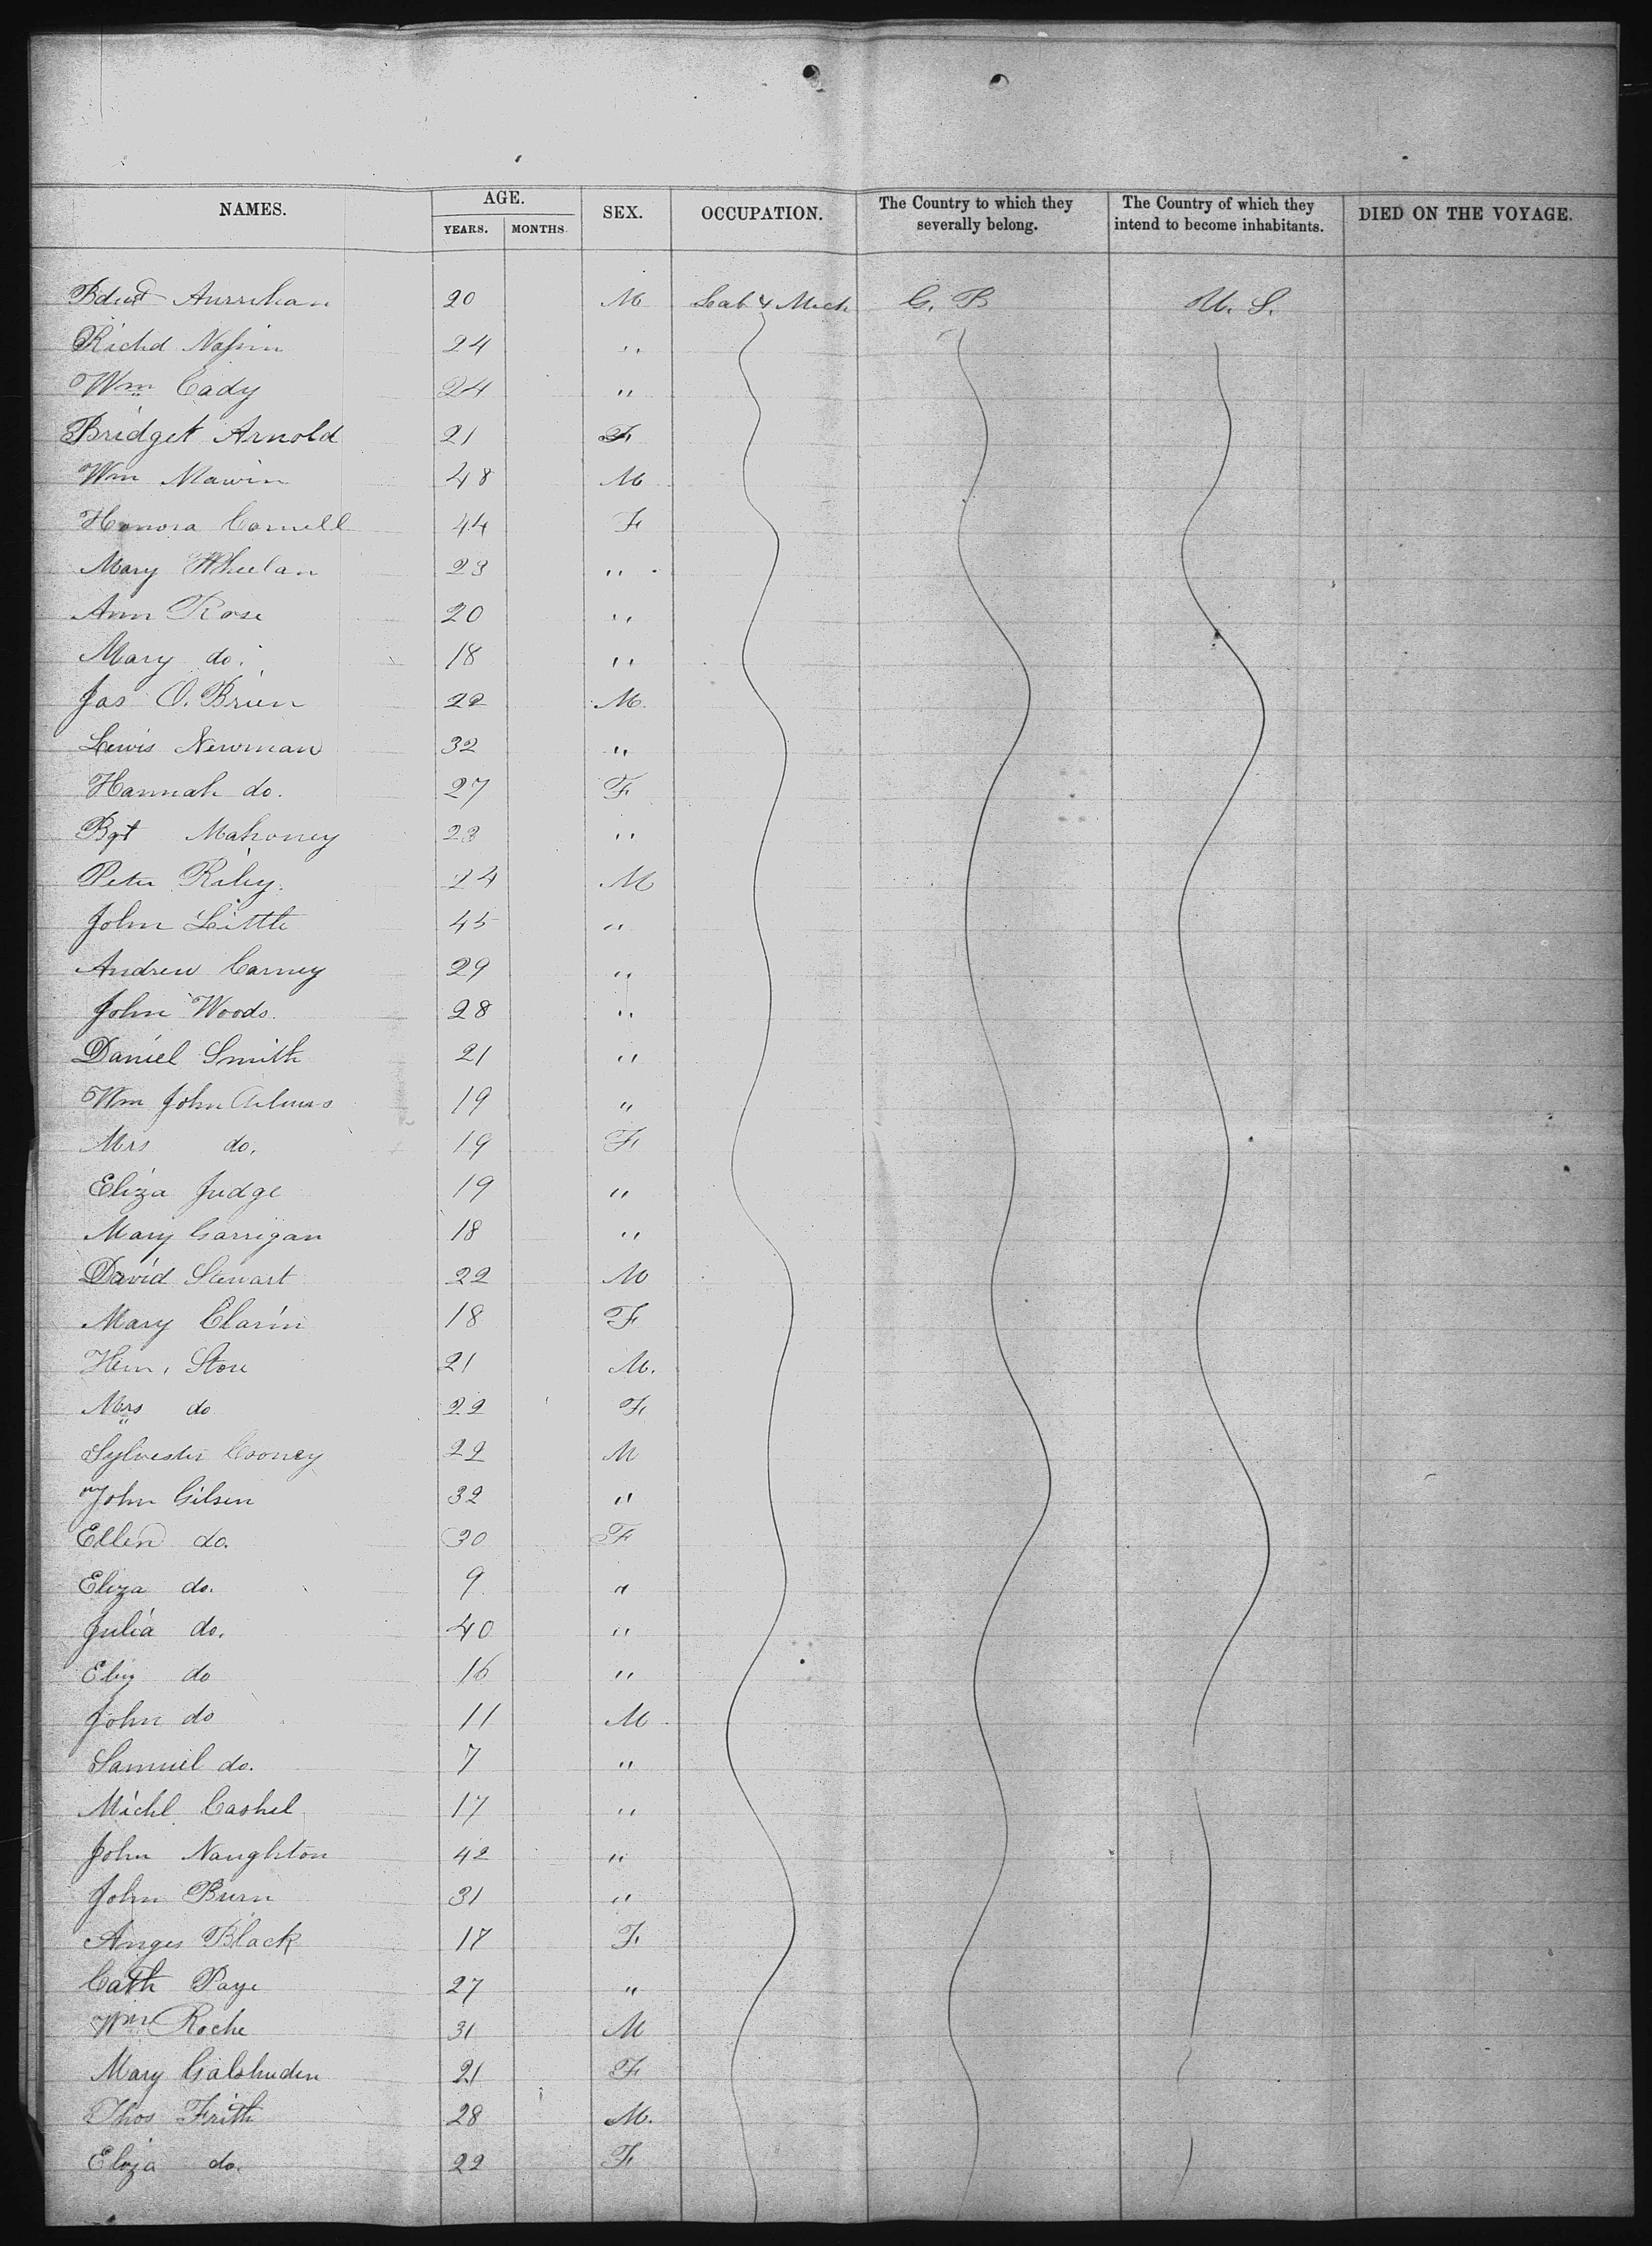 NAMES. AGE. SEX. OCCUPATION. The Country to which they severally belong. The Country of which they intend to become inhabitants. DIED ON THE VOYAGE.
YEARS. MONTHS
20 M Lab & Mech G. B U. S.
Richd 24 "
Wm Cady 24 "
Bridget Arnold 21 F
Wm Mawin 48 M
Honora Cornell 44 F
Mary Wheelan 23 "
Ann Rose 20 "
Mary do. 18 "
Jas O. Brien 22 M
Lewis Newman 32 "
Hannah do. 27 F
Bgt Mahoney 23 "
Peter Riley. 24 M
John Little 45 "
Andrew Carney 29 "
John Woods. 28 "
Daniel Smith 21 "
Wm John 19 "
Mrs do. 19 F
Eliza Judge 19 "
Mary Garrigan 18 "
David Stewart 22 M
Mary Clarin 18 F
Store 21 M.
Mrs do 22 F
Sylvester Cooney 22 M
John Gilsen 32 "
Ellen do. 30 F
Eliza do. 9 "
Julia do. 40 "
Eliz do 16 "
John do 11 M
Samuel do. 7 "
Michl Cashel 17 "
John Naughton 42 "
John Burn 31 "
Anges Black 17 F
Cath Paye 27 "
Wm Roche 31 M
Mary 21 F
Thos Frith 28 M.
Eliza do. 22 F